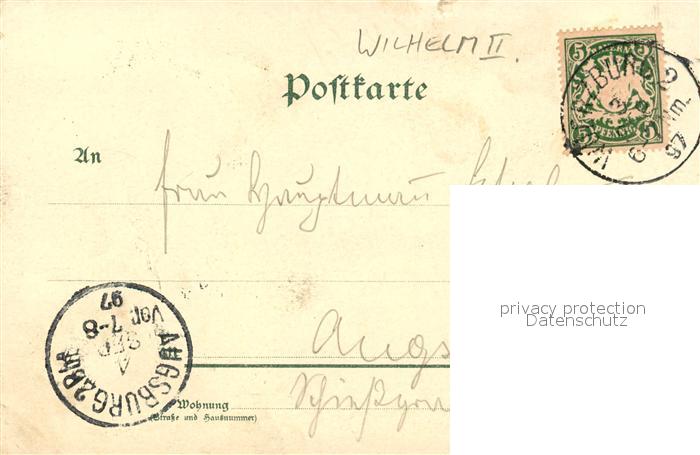 WILHELM II.
5 BAYERN 5
5 PFENNIG 5
WÜRZBURG 2
Nm.
97
Postkarte
An
Frau Hauptmann
privacy protection
Datenschutz
AUGSBURG 2 Bhf
4
SEP
Vor. 7-8
97
Augs
Wohnung
(Straße und Hausnummer)